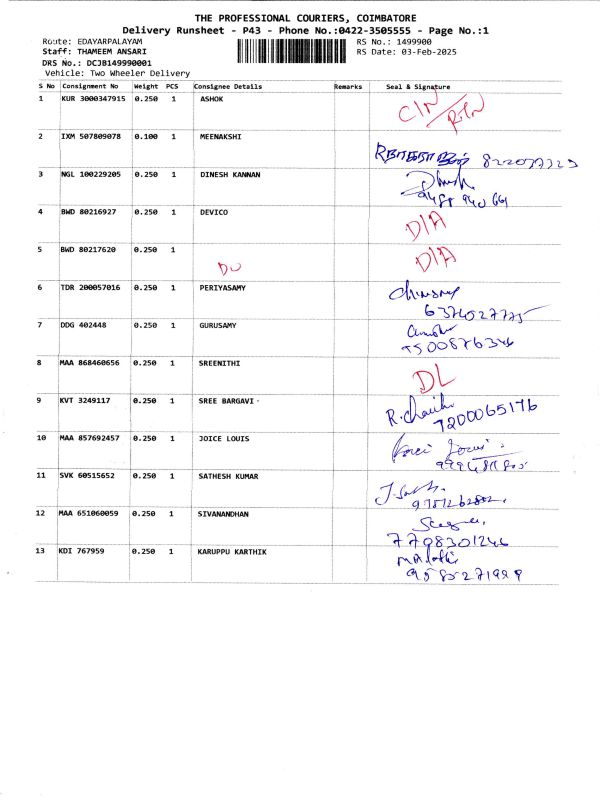 THE PROFESSIONAL COURIERS, COIMBATORE
Delivery Runsheet - P43 - Phone No.:0422-3505555 - Page No.:1
Route: EDAYARPALAYAM RS No.: 1499900
Staff: THAMEEM ANSARI RS Date: 03-Feb-2025
DRS No.: DCJB149990001
Vehicle: Two Wheeler Delivery
S No Consignment No Weight PCS Consignee Details Remarks Seal & Signature
1 KUR 3000347915 0.250 1 ASHOK
2 IXM 507809078 0.100 1 MEENAKSHI
3 NGL 100229205 0.250 1 DINESH KANNAN
4 BWD 80216927 0.250 1 DEVICO D/A
5 BWD 80217620 0.250 1 D/A
6 TDR 200057016 0.250 1 PERIYASAMY
6374527775
7 DDG 402448 0.250 1 GURUSAMY
8 MAA 868460656 0.250 1 SREENITHI DL
9 KVT 3249117 0.250 1 SREE BARGAVI
7200065176
10 MAA 857692457 0.250 1 JOICE LOUIS
11 SVK 60515652 0.250 1 SATHESH KUMAR
12 MAA 651060059 0.250 1 SIVANANDHAN
7708301246
13 KDI 767959 0.250 1 KARUPPU KARTHIK